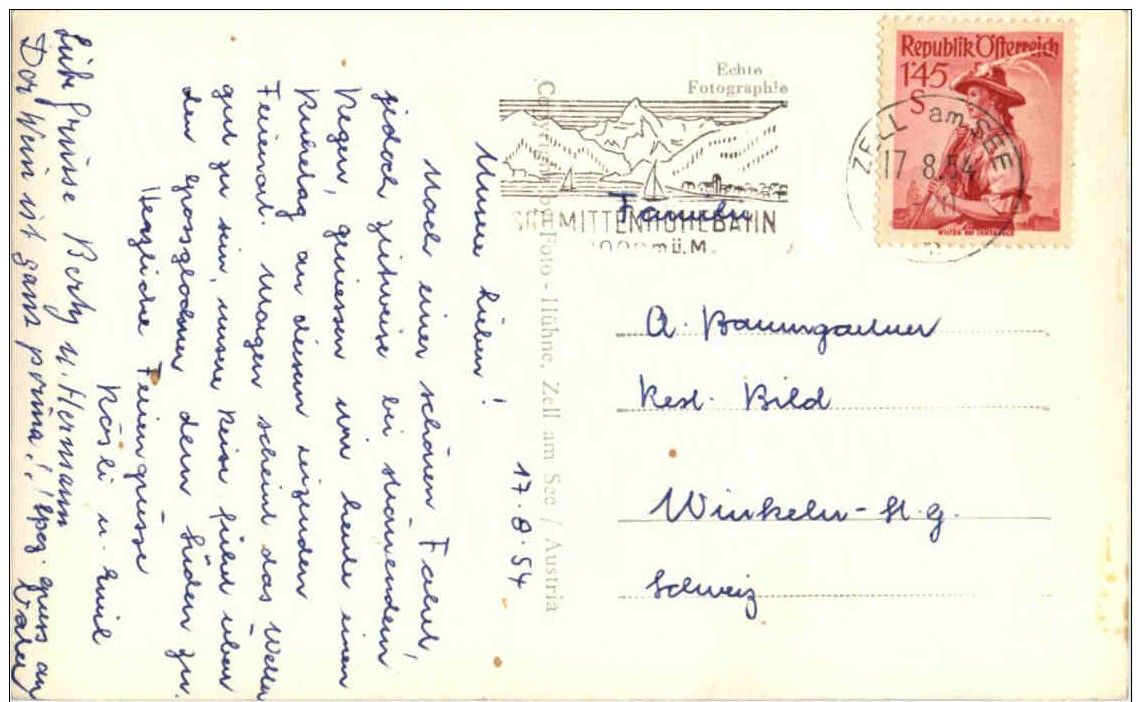 17.8.54
Meine Lieben!
Nach einer schönen Fahrt,
jedoch zeitweise bei strömendem
Regen, geniessen wir heute einen
Ruhetag an diesem reizenden
Ferienort. Morgen scheint das Wetter
gut zu sein, unsere Reise führt über
den Grossglockner dem Süden zu.
Herzliche Feriengrüsse
Rösli u. Emil
Liebe Grüsse Berty u. Hermann
Der Wein ist ganz prima!! Spez. gruss an
Vater
Echte
Fotographie
Foto-Hühne, Zell am See / Austria
SCHMITTENHÖHEBAHN
2000 m ü. M.
Republik Österreich
1'45
S
ZELL am SEE
17.8.54
Familie
A. Baumgartner
Rest. Bild
Winkeln-St. G.
Schweiz